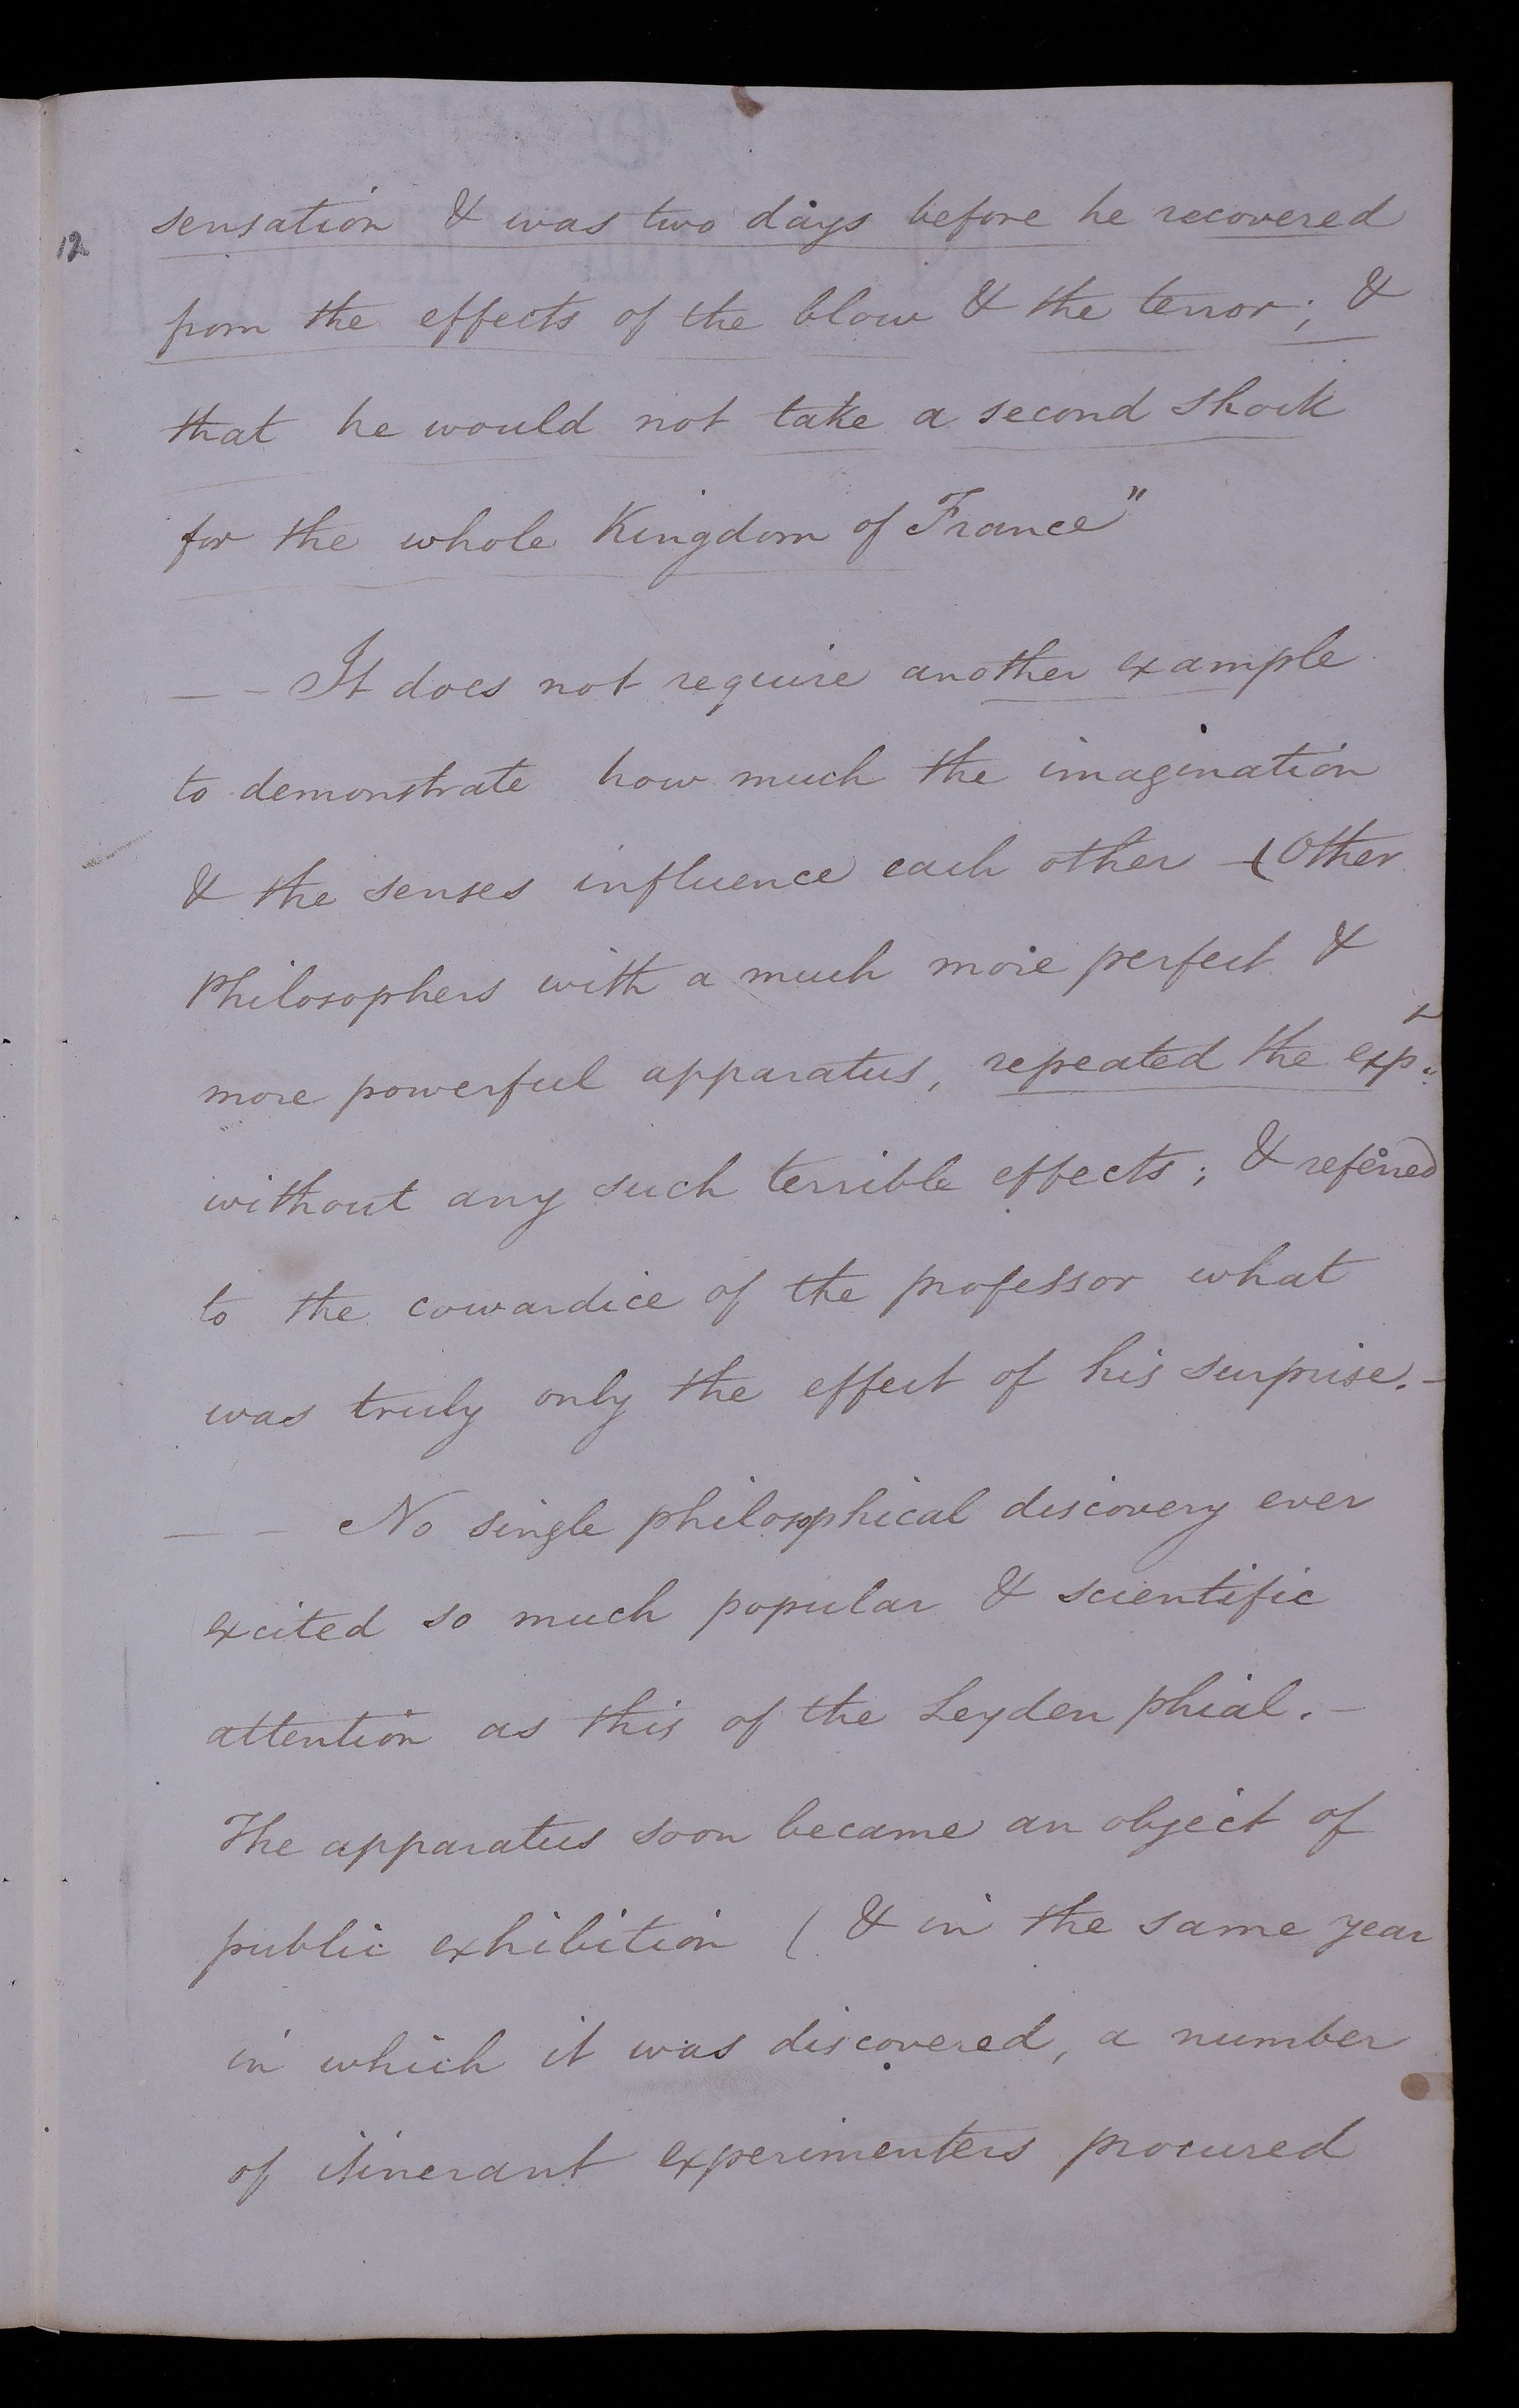 12
sensation & was two days before he recovered
from the effects of the blow & the terror; &
that he would not take a second shock
for the whole Kingdom of France"
— – It does not require another example
to demonstrate how much the imagination
& the senses influence each other – (Other
Philosophers with a much more perfect &
more powerful apparatus, repeated the expt
without any such terrible effects; & referred
to the cowardice of the professor what
was truly only the effect of his surprise. –
— – No single philosophical discovery ever
excited so much popular & scientific
attention as this of the Leyden phial. –
The apparatus soon became an object of
public exhibition ( & in the same year
in which it was discovered, a number
of itinerant experimenters procured